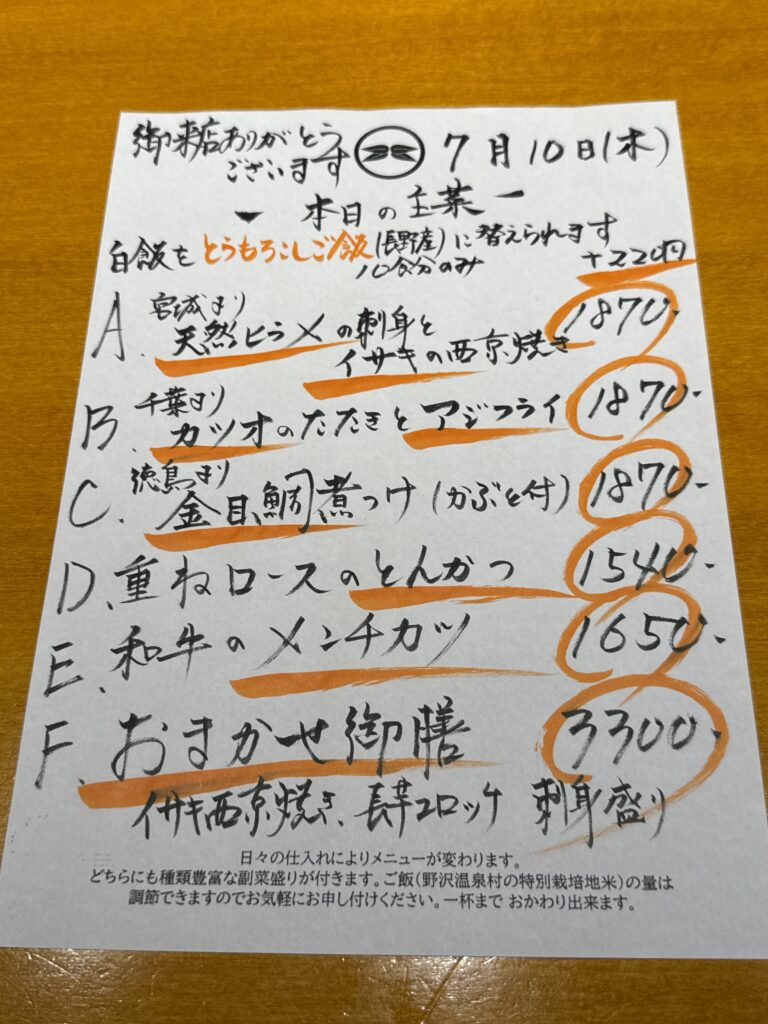 御来店ありがとう
ございます
7月10日(木)
本日の主菜
白飯をとうもろこしご飯(長野産)に替えられます
10食分のみ +220円
A. 宮城より
天然ヒラメの刺身と
イサキの西京焼き 1870-
B. 千葉より
カツオのたたきとアジフライ 1870-
C. 徳島より
金目鯛煮つけ(かぶと付) 1870-
D. 重ねロースのとんかつ 1540-
E. 和牛のメンチカツ 1650-
F. おまかせ御膳 3300-
イサキ西京焼き、長芋コロッケ 刺身盛り
日々の仕入れによりメニューが変わります。
どちらにも種類豊富な副菜盛りが付きます。ご飯(野沢温泉村の特別栽培地米)の量は
調節できますのでお気軽にお申し付けください。一杯まで おかわり出来ます。